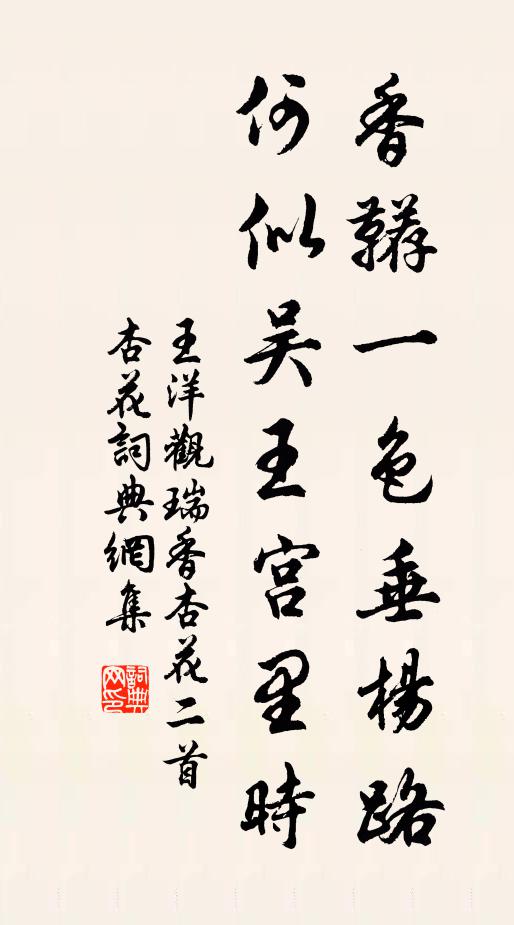 香鞯一色垂楊路
何似吴王宫里時
王洋觀瑞香杏花二首
杏花詞典網集
詞典网印